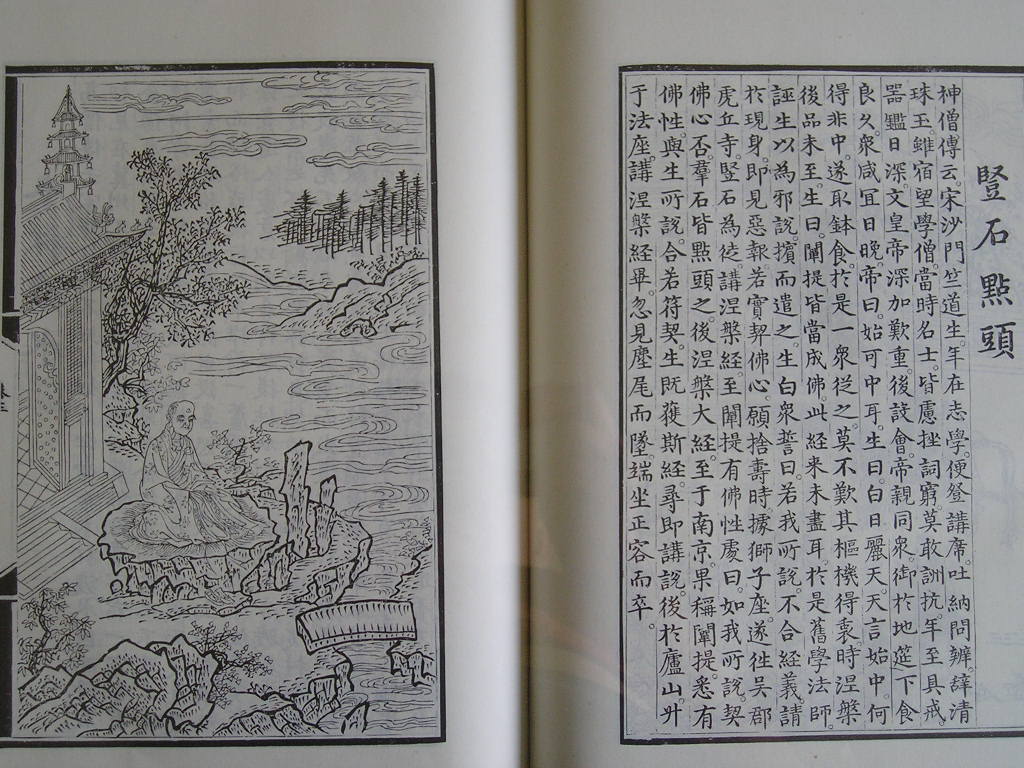 豎石點頭
神僧傳云。宋沙門竺道生。年在志學。便登講席。吐納問辨。辭清
珠玉。雖宿望學僧。當時名士。皆慮挫詞窮。莫敢詶抗。年至具戒
器鑑日深。文皇帝深加歎重。後設會。帝親同衆御於地筵。下食
良久。衆咸冝日晚。帝曰。始可中耳。生曰。白日麗天。天言始中。何
得非中。遂取鉢食。於是一衆從之。莫不歎其樞機得衷。時涅槃
後品未至。生曰。闡提皆當成佛。此經來未盡耳。於是舊學法師
誣生以為邪說。擯而遣之。生白衆誓曰。若我所說。不合經義。請
於現身。即見惡報。若實契佛心。願捨壽時。據獅子座。遂徃吳郡
虎丘寺。豎石為徒。講涅槃經。至闡提有佛性處。曰。如我所說。契
佛心否。羣石皆點頭之。後涅槃大經至于南京。果稱闡提。悉有
佛性。與生所說。合若符契。生既獲斯經。尋即講說。後於廬山。升
于法座。講涅槃經畢。忽見麈尾而墜。端坐正容而卒。